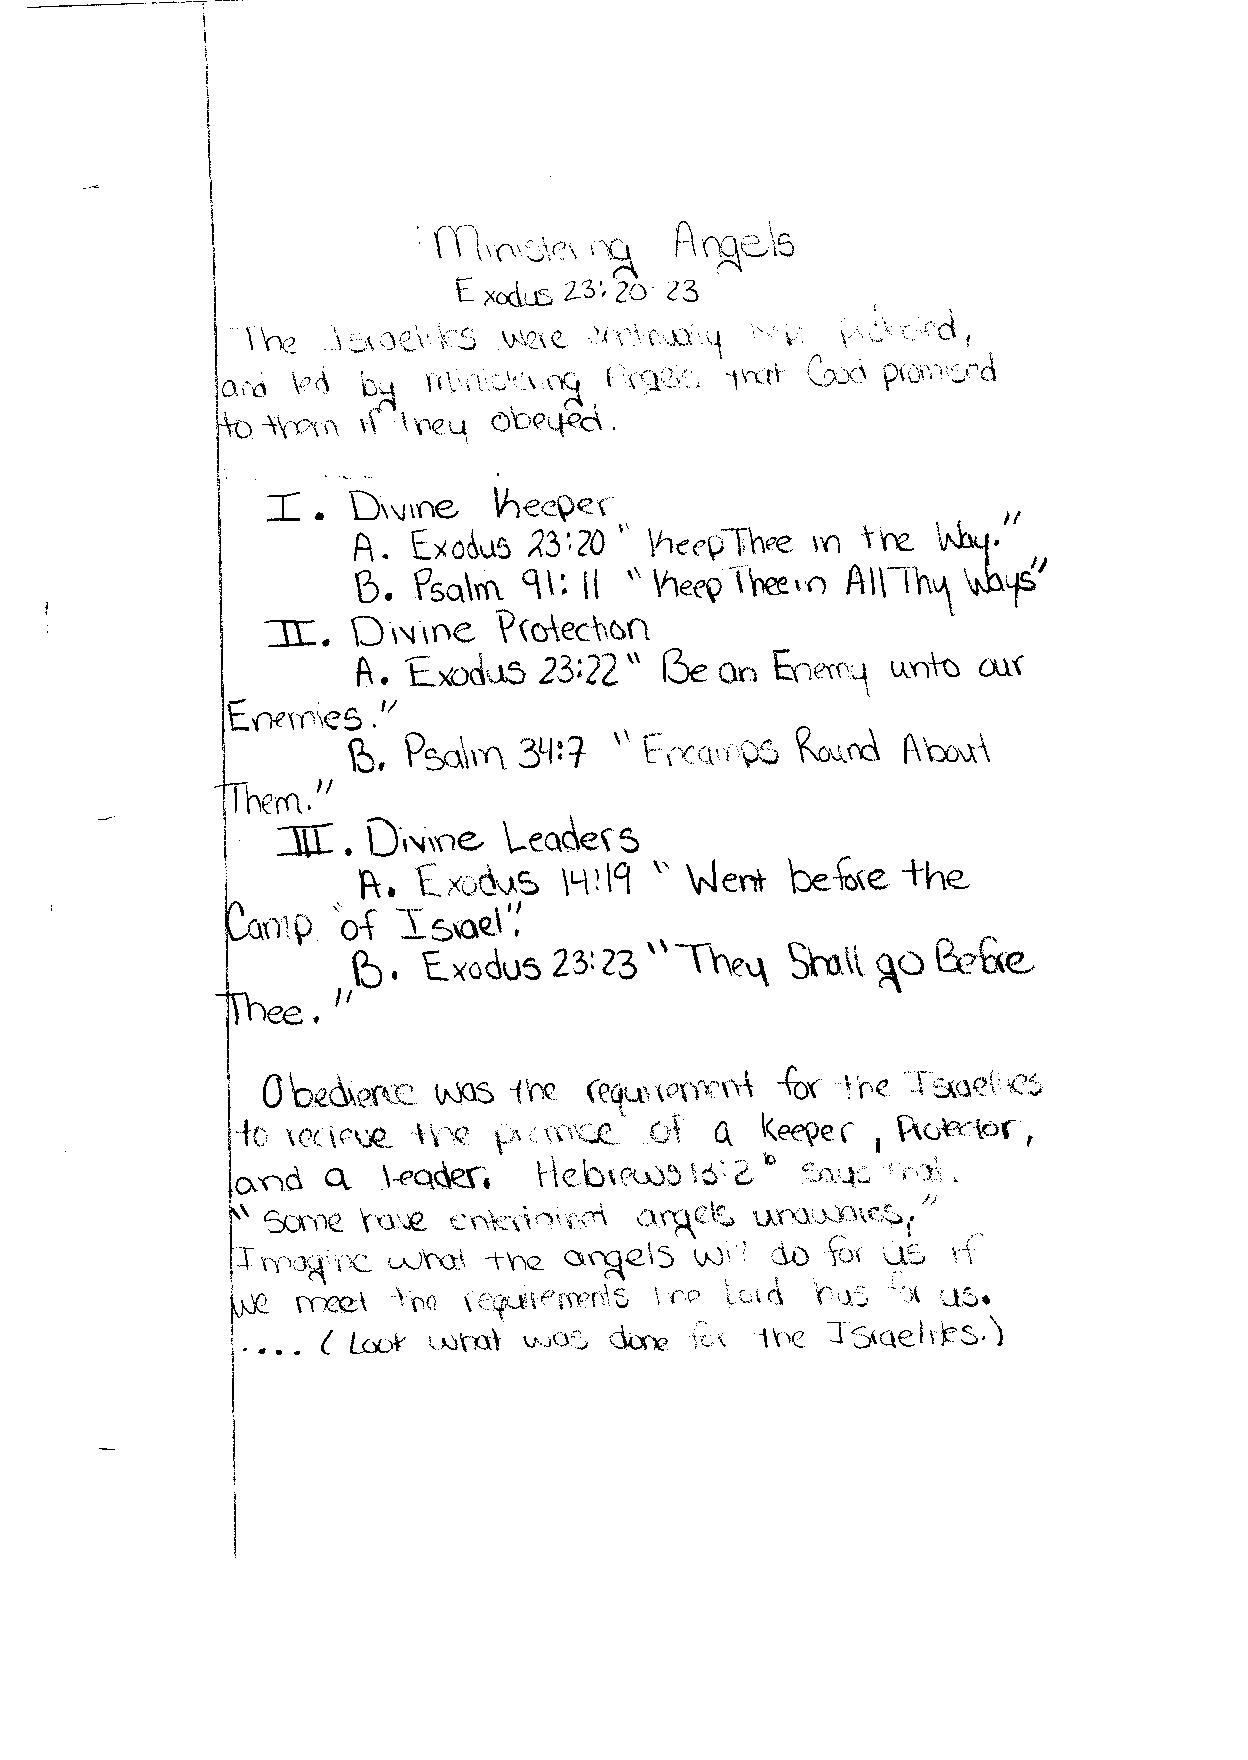 Ministering Angels
Exodus 23:20-23
The Israelites were
and led by Ministering Angels that God promised
to them if they obeyed.
I. Divine Keeper
A. Exodus 23:20 "Keep Thee in the Way."
B. Psalm 91:11 "Keep Thee in All Thy Ways"
II. Divine Protection
A. Exodus 23:22 "Be an Enemy unto our
Enemies."
B. Psalm 34:7 "Encamps Round About
Them."
III. Divine Leaders
A. Exodus 14:19 "Went before the
Camp of Israel".
B. Exodus 23:23 "They Shall go Before
Thee."
Obedience was the requirement for the Israelites
to recieve the promice of a Keeper, Protector,
and a Leader. Hebrews 13:2 says that
"Some have angels
Imagine what the angels will do for us if
we meet the requirements the Lord has for us.
.... (Look what was done for the Israelites.)